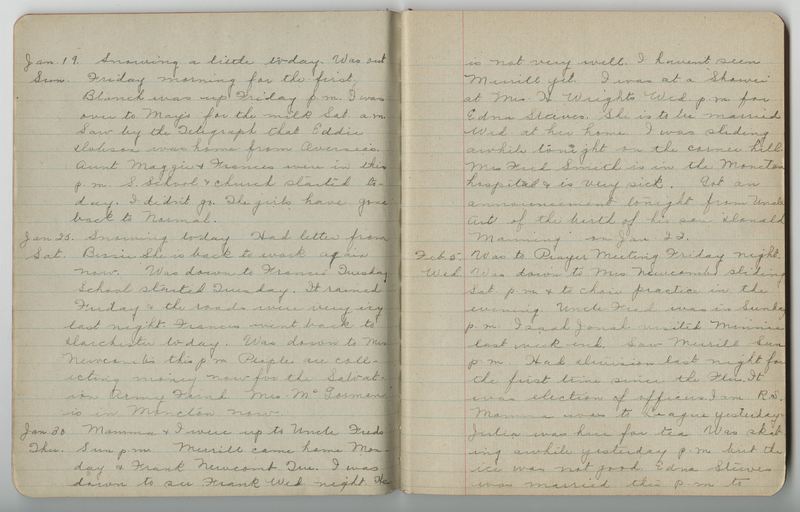 Jan. 19. Snowing a little to-day. Was out
Sun. Friday morning for the first.
Blanch was up Friday p.m. I was
over to May's for the milk Sat. a.m.
Saw by the Telegraph that Eddie
Dobson was home from Overseas.
Aunt Maggie & Frances were in this
p.m. S. School & church started to-
day. I didn't go. The girls have gone
back to Normal.
Jan. 25. Snowing to-day Had letter from
Sat. Bessie She is back to work again
now. Was down to Frances Tuesday
School started Tuesday. It rained
Friday & the roads were very icy
last night. Frances went back to
Dorchester to-day. Was down to Mrs
Newcombs this p.m People are coll-
ecting money now for the Salvat-
ion Army Fund Mrs. McGorman
is in Moncton now.
Jan 30 Mamma & I were up to Uncle Freds
Thu. Sun p.m Merrill came home Mon-
day & Frank Newcomb Tue. I was
down to see Frank Wed night. He
is not very well. I havent seen
Merrill yet. I was at a "Shower"
at Mrs. Wrights Wed p.m for
Edna Steeves. She is to be married
Wed at her home. I was sliding
awhile to-night on the corner hill.
Mrs Fred Smith is in the Moncton
hospital & is very sick. Got an
announcement tonight from Uncle
Art of the birth of his son "Donald
Manning" on Jan 22.
Feb 5. Was to Prayer Meeting Friday night.
Wed. Was down to Mrs Newcombs sliding
Sat. p.m & to choir practice in the
evening. Uncle Fred was in Sunday
p.m. Jonah visited Minnie
last week-end. Saw Merrill Sun
p.m. Had division last night for
the first time since the Flu. It
was election of officers. I am R.S.
Mamma was to League yesterday
Julia was here for tea Was skat-
ing awhile yesterday p.m but the
ice was not good. Edna Steeves
was married this p.m to